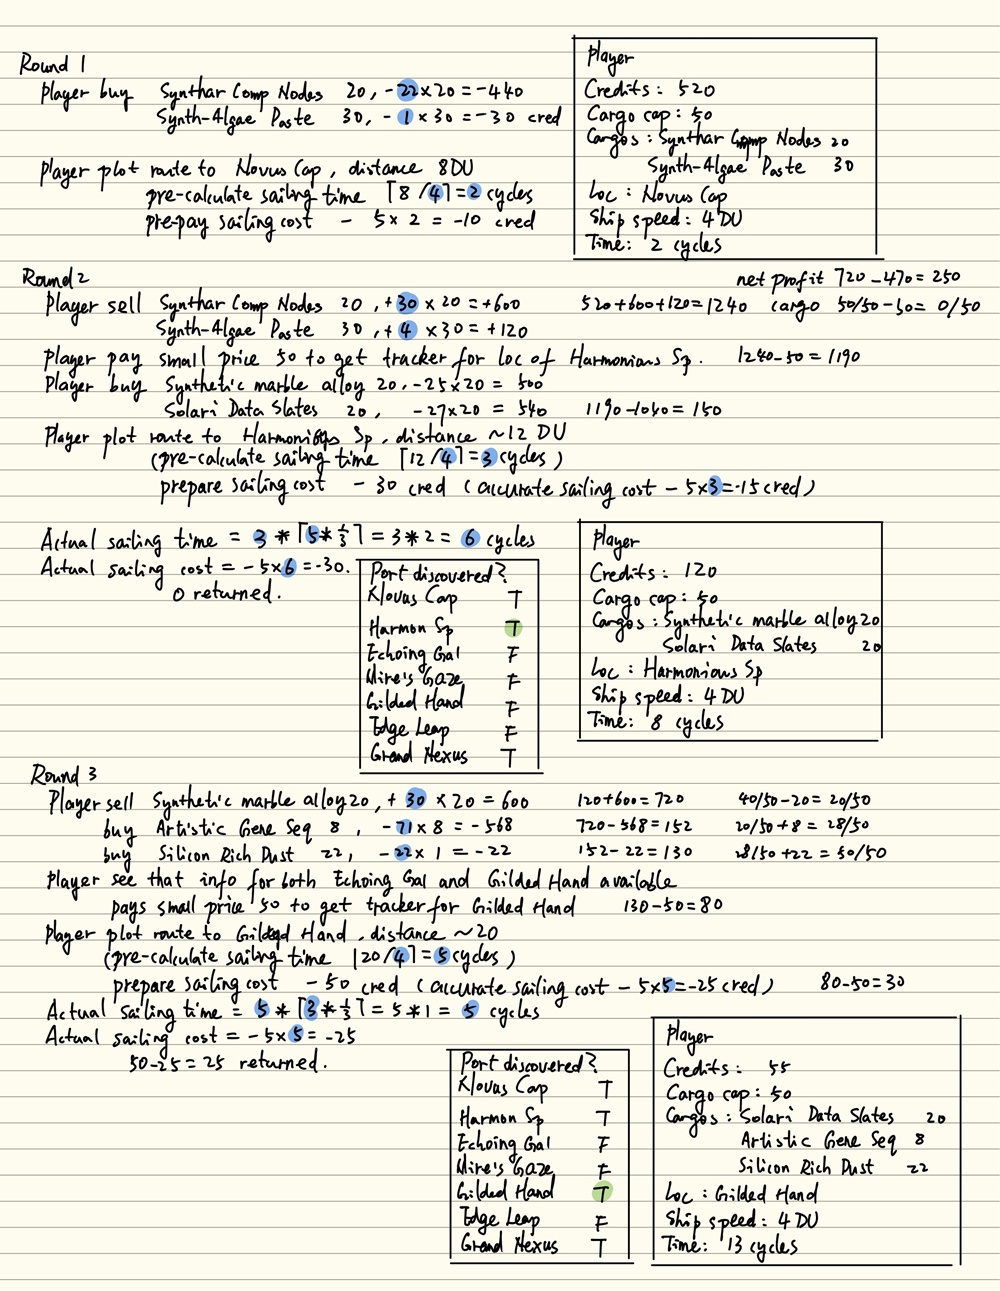 Round 1
Player buy Synthar Comp Nodes 20, -22×20=-440
Synth-Algae Paste 30, -1×30=-30 cred
Player plot route to Novus Cap, distance 8DU
pre-calculate sailing time ⌈8/4⌉=2 cycles
pre-pay sailing cost - 5×2=-10 cred
Player
Credits: 520
Cargo cap: 50
Cargos: Synthar Comp Nodes 20
Synth-Algae Paste 30
Loc: Novus Cap
Ship speed: 4DU
Time: 2 cycles
Round2
net profit 720-470=250
Player sell Synthar Comp Nodes 20, +30×20=+600 520+600+120=1240 cargo 50/50-50=0/50
Synth-Algae Paste 30, +4×30=+120
Player pay small price 50 to get tracker for loc of Harmonians Sp. 1240-50=1190
Player buy Synthetic marble alloy 20, -25×20= 500
Solari Data Slates 20, -27×20= 540 1190-1040=150
Player plot route to Harmonious Sp, distance ~12 DU
(pre-calculate sailing time ⌈12/4⌉=3 cycles)
prepare sailing cost - 30 cred (accurate sailing cost - 5×3=-15 cred)
Actual sailing time = 3*⌈5*⅓⌉=3*2=6 cycles
Actual sailing cost = -5×6=-30.
0 returned.
Port discovered?
Klovus Cap T
Harmon Sp T
Echoing Gal F
Mire's Gaze F
Gilded Hand F
Edge Leap F
Grand Nexus T
Player
Credits: 120
Cargo cap: 50
Cargos: Synthetic marble alloy 20
Solari Data Slates 20
Loc: Harmonious Sp
Ship speed: 4DU
Time: 8 cycles
Round 3
Player sell Synthetic marble alloy 20, + 30 ×20=600 120+600=720 40/50-20=20/50
buy Artistic Gene Seq 8, -71×8=-568 720-568=152 20/50+8=28/50
buy Silicon Rich Dust 22, -22×1=-22 152-22=130 28/50+22=50/50
Player see that info for both Echoing Gal and Gilded Hand available
pays small price 50 to get tracker for Gilded Hand 130-50=80
Player plot route to Gilded Hand, distance ~20
(pre-calculate sailing time ⌈20/4⌉=5 cycles)
prepare sailing cost - 50 cred (accurate sailing cost - 5×5=-25 cred) 80-50=30
Actual sailing time = 5*⌈3*⅓⌉=5*1=5 cycles
Actual sailing cost = -5×5=-25
50-25=25 returned.
Port discovered?
Klovus Cap T
Harmon Sp T
Echoing Gal F
Mire's Gaze F
Gilded Hand T
Edge Leap F
Grand Nexus T
Player
Credits: 55
Cargo cap: 50
Cargos: Solari Data Slates 20
Artistic Gene Seq 8
Silicon Rich Dust 22
Loc: Gilded Hand
Ship speed: 4DU
Time: 13 cycles